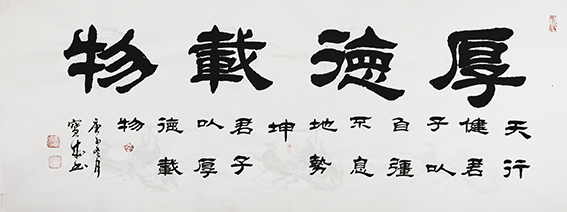 厚德載物
天行
健君
子以
自彊
不息
地勢
坤
君子
以厚
德載
物
庚子冬月